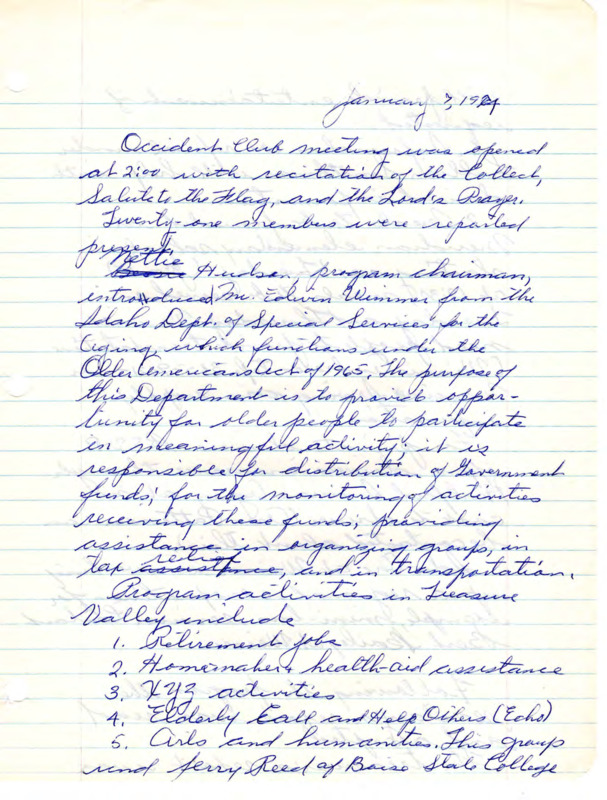 January 7, 1974
Occident Club meeting was opened
at 2:00 with recitation of the Collect,
Salute to the Flag, and the Lord's Prayer.
Twenty-one members were reported
present.
Nettie
Hudson, program chairman,
introduced Mr. Edwin Wimmer from the
Idaho Dept. of Special Services for the
Aging, which functions under the
Older Americans Act of 1965. The purpose of
this Department is to provide oppor-
tunity for older people to participate
in meaningful activity; it is
responsible for distribution of Government
funds; for the monitoring of activities
receiving these funds; providing
assistance in organizing groups, in
relief
tax assistance, and in transportation.
Program activities in Treasure
Valley include
1. Retirement jobs
2. Homemakers health-aid assistance
3. XYZ activities
4. Elderly Call and Help Others (Echo)
5. Arts and humanities. This group
and Jerry Reed of Boise State College